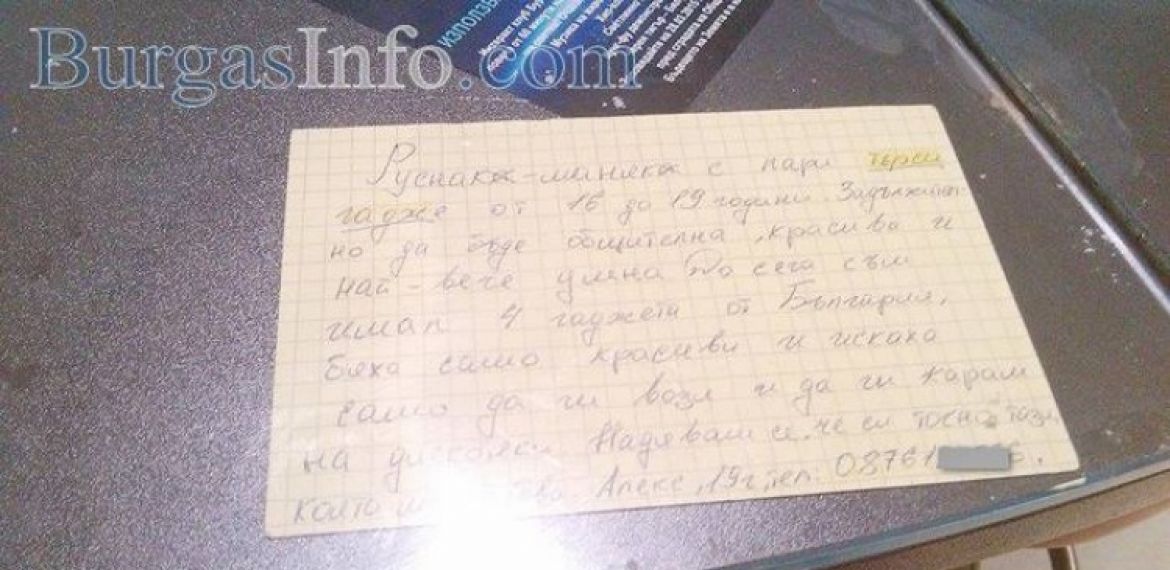 BurgasInfo.com
ИЗПОЛЗВ
Руснакж-манякж с пари търси
гадже от 16 до 19 години. Задължител-
но да бъде общителна, красива и
най-вече умна До сега съм
имал 4 гаджета от България,
бяха само красиви и искаха
само да ги возя и да ги карам
на дискотеки. Надявам се, че си точно тази
която Алекс, 19г, тел: 08761 6.